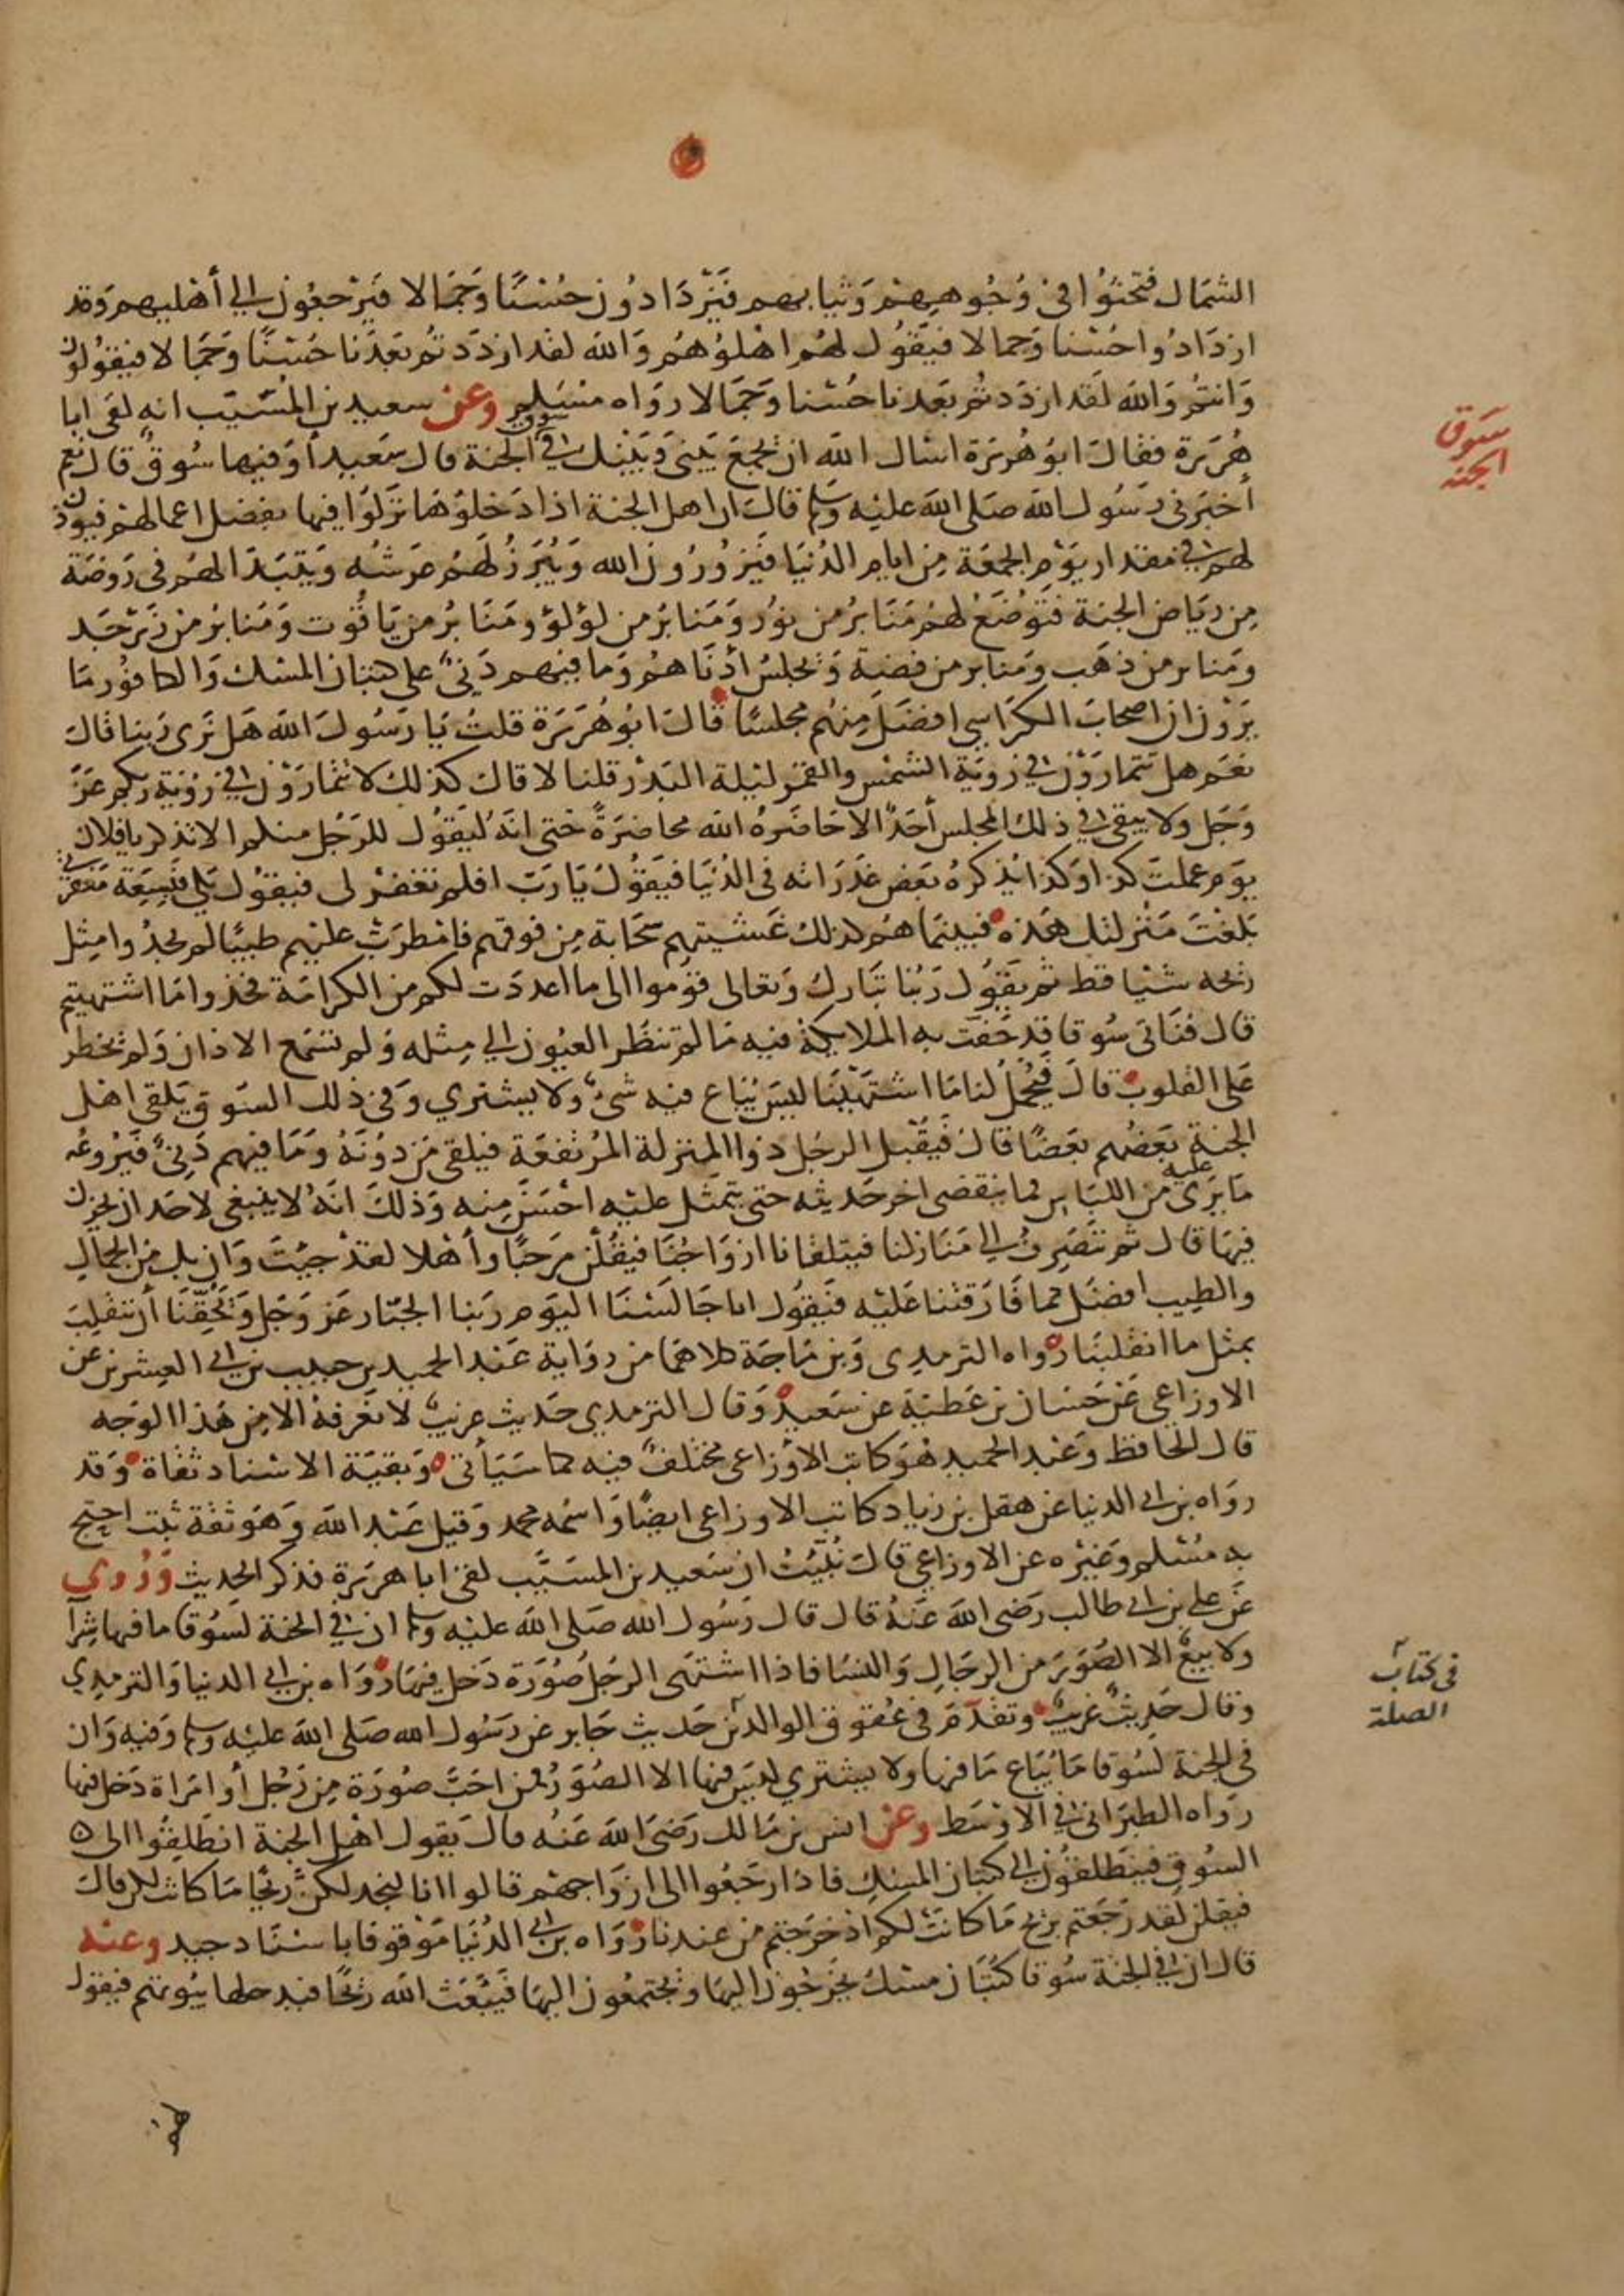 الشمال فتحثوا في وجوههم وثيابهم فيزدادون حسنا وجمالا فيرجعون الى أهليهم وقد
ازدادوا حسنا وجمالا فيقول لهم اهلوهم والله لقد ازددتم بعدنا حسنا وجمالا فيقولون
وانتم والله لقد ازددتم بعدنا حسنا وجمالا رواه مسلم وعن سعيد بن المسيب انه لقي ابا
هريرة فقال ابو هريرة اسال الله ان يجمع بيني وبينك في سوق الجنة قال سعيد أو فيها سوق قال نعم
أخبرني رسول الله صلى الله عليه وسلم قال ان اهل الجنة اذا دخلوها نزلوا فيها بفضل اعمالهم فيوذن
لهم في مقدار يوم الجمعة من ايام الدنيا فيزورون الله ويبرز لهم عرشه ويتبدا لهم في روضة
من رياض الجنة فتوضع لهم منابر من نور ومنابر من لؤلؤ ومنابر من ياقوت ومنابر من زبرجد
ومنابر من ذهب ومنابر من فضة ويجلس ادناهم وما فيهم دني على كثبان المسك والكافور ما
يرون ان اصحاب الكراسي افضل منهم مجلسا قال ابو هريرة قلت يا رسول الله هل نرى ربنا قال
نعم هل تتمارون في رؤية الشمس والقمر ليلة البدر قلنا لا قال كذلك لا تمارون في رؤية ربكم عز
وجل ولا يبقى في ذلك المجلس أحد الا حاضره الله محاضرة حتى انه ليقول للرجل منكم الا تذكر يا فلان
يوم عملت كذا وكذا يذكره بعض غدراته في الدنيا فيقول يا رب افلم تغفر لي فيقول بلى فبسعة مغفرتي
بلغت منزلتك هذه فبينما هم كذلك غشيتهم سحابة من فوقهم فامطرت عليهم طيبا لم يجدوا مثل
ريحه شيا قط ثم يقول ربنا تبارك وتعالى قوموا الى ما اعددت لكم من الكرامة فخذوا ما اشتهيتم
قال فناتي سوقا قد حفت به الملايكة فيه ما لم تنظر العيون الى مثله ولم تسمع الاذان ولم يخطر
على القلوب قال فيحمل لنا ما اشتهينا ليس يباع فيه شيء ولا يشتري وفي ذلك السوق يلقى اهل
الجنة بعضهم بعضا قال فيقبل الرجل ذوا المنزلة المرتفعة فيلقى من دونه وما فيهم دني فيروعه
ما يرى عليه من اللباس فما ينقضي اخر حديثه حتى يتمثل عليه احسن منه وذلك انه لا ينبغي لاحد ان يحزن
فيها قال ثم ننصرف الى منازلنا فيتلقانا ازواجنا فيقلن مرحبا وأهلا لقد جيت وان بك من الجمال
والطيب افضل مما فارقتنا عليه فيقول انا جالسنا اليوم ربنا الجبار عز وجل ويحقنا أن ننقلب
بمثل ما انقلبنا رواه الترمدي وبن ماجة كلاهما من رواية عبد الحميد بن حبيب بن ابي العشرين عن
الاوزاعي عن حسان بن عطية عن سعيد وقال الترمدي حديث غريب لا نعرفه الا من هذا الوجه
قال الحافظ وعبد الحميد هو كاتب الاوزاعي مختلف فيه كما سيأتي وبقية الاسناد ثقاة وقد
رواه بن ابي الدنيا عن هقل بن زياد كاتب الاوزاعي ايضا واسمه محمد وقيل عبد الله وهو ثقة ثبت احتج
به مسلم وغيره عن الاوزاعي قال نبيت ان سعيد بن المسيب لقي ابا هريرة فذكر الحديث وروي
عن علي بن ابي طالب رضي الله عنه قال قال رسول الله صلى الله عليه وسلم ان في الجنة لسوقا ما فيها شرآ
ولا بيع الا الصور من الرجال والنسا فاذا اشتهى الرجل صورة دخل فيها رواه بن ابي الدنيا والترمدي
وقال حديث غريب وتقدم في عقوق الوالدين حديث جابر عن رسول الله صلى الله عليه وسلم وفيه وان
في الجنة لسوقا ما يباع ما فيها ولا يشتري ليس فيها الا الصور فمن احب صورة من رجل أو امراة دخل فيها
رواه الطبراني في الاوسط وعن انس بن مالك رضي الله عنه قال يقول اهل الجنة انطلقوا الى
السوق فينطلقون الى كثبان المسك فاذا رجعوا الى ازواجهم قالوا انا لنجد لكن ريحا ما كانت لكن قال
فيقلن لقد رجعتم بريح ما كانت لكم اذ خرجتم من عندنا رواه بن ابي الدنيا موقوفا باسناد جيد وعنه
قال ان في الجنة سوقا كثبان مسك يخرجون اليها ويجتمعون اليها فيبعث الله ريحا فيدخلها بيوتهم فيقول
سوق
الجنة
في كتاب
الصلة